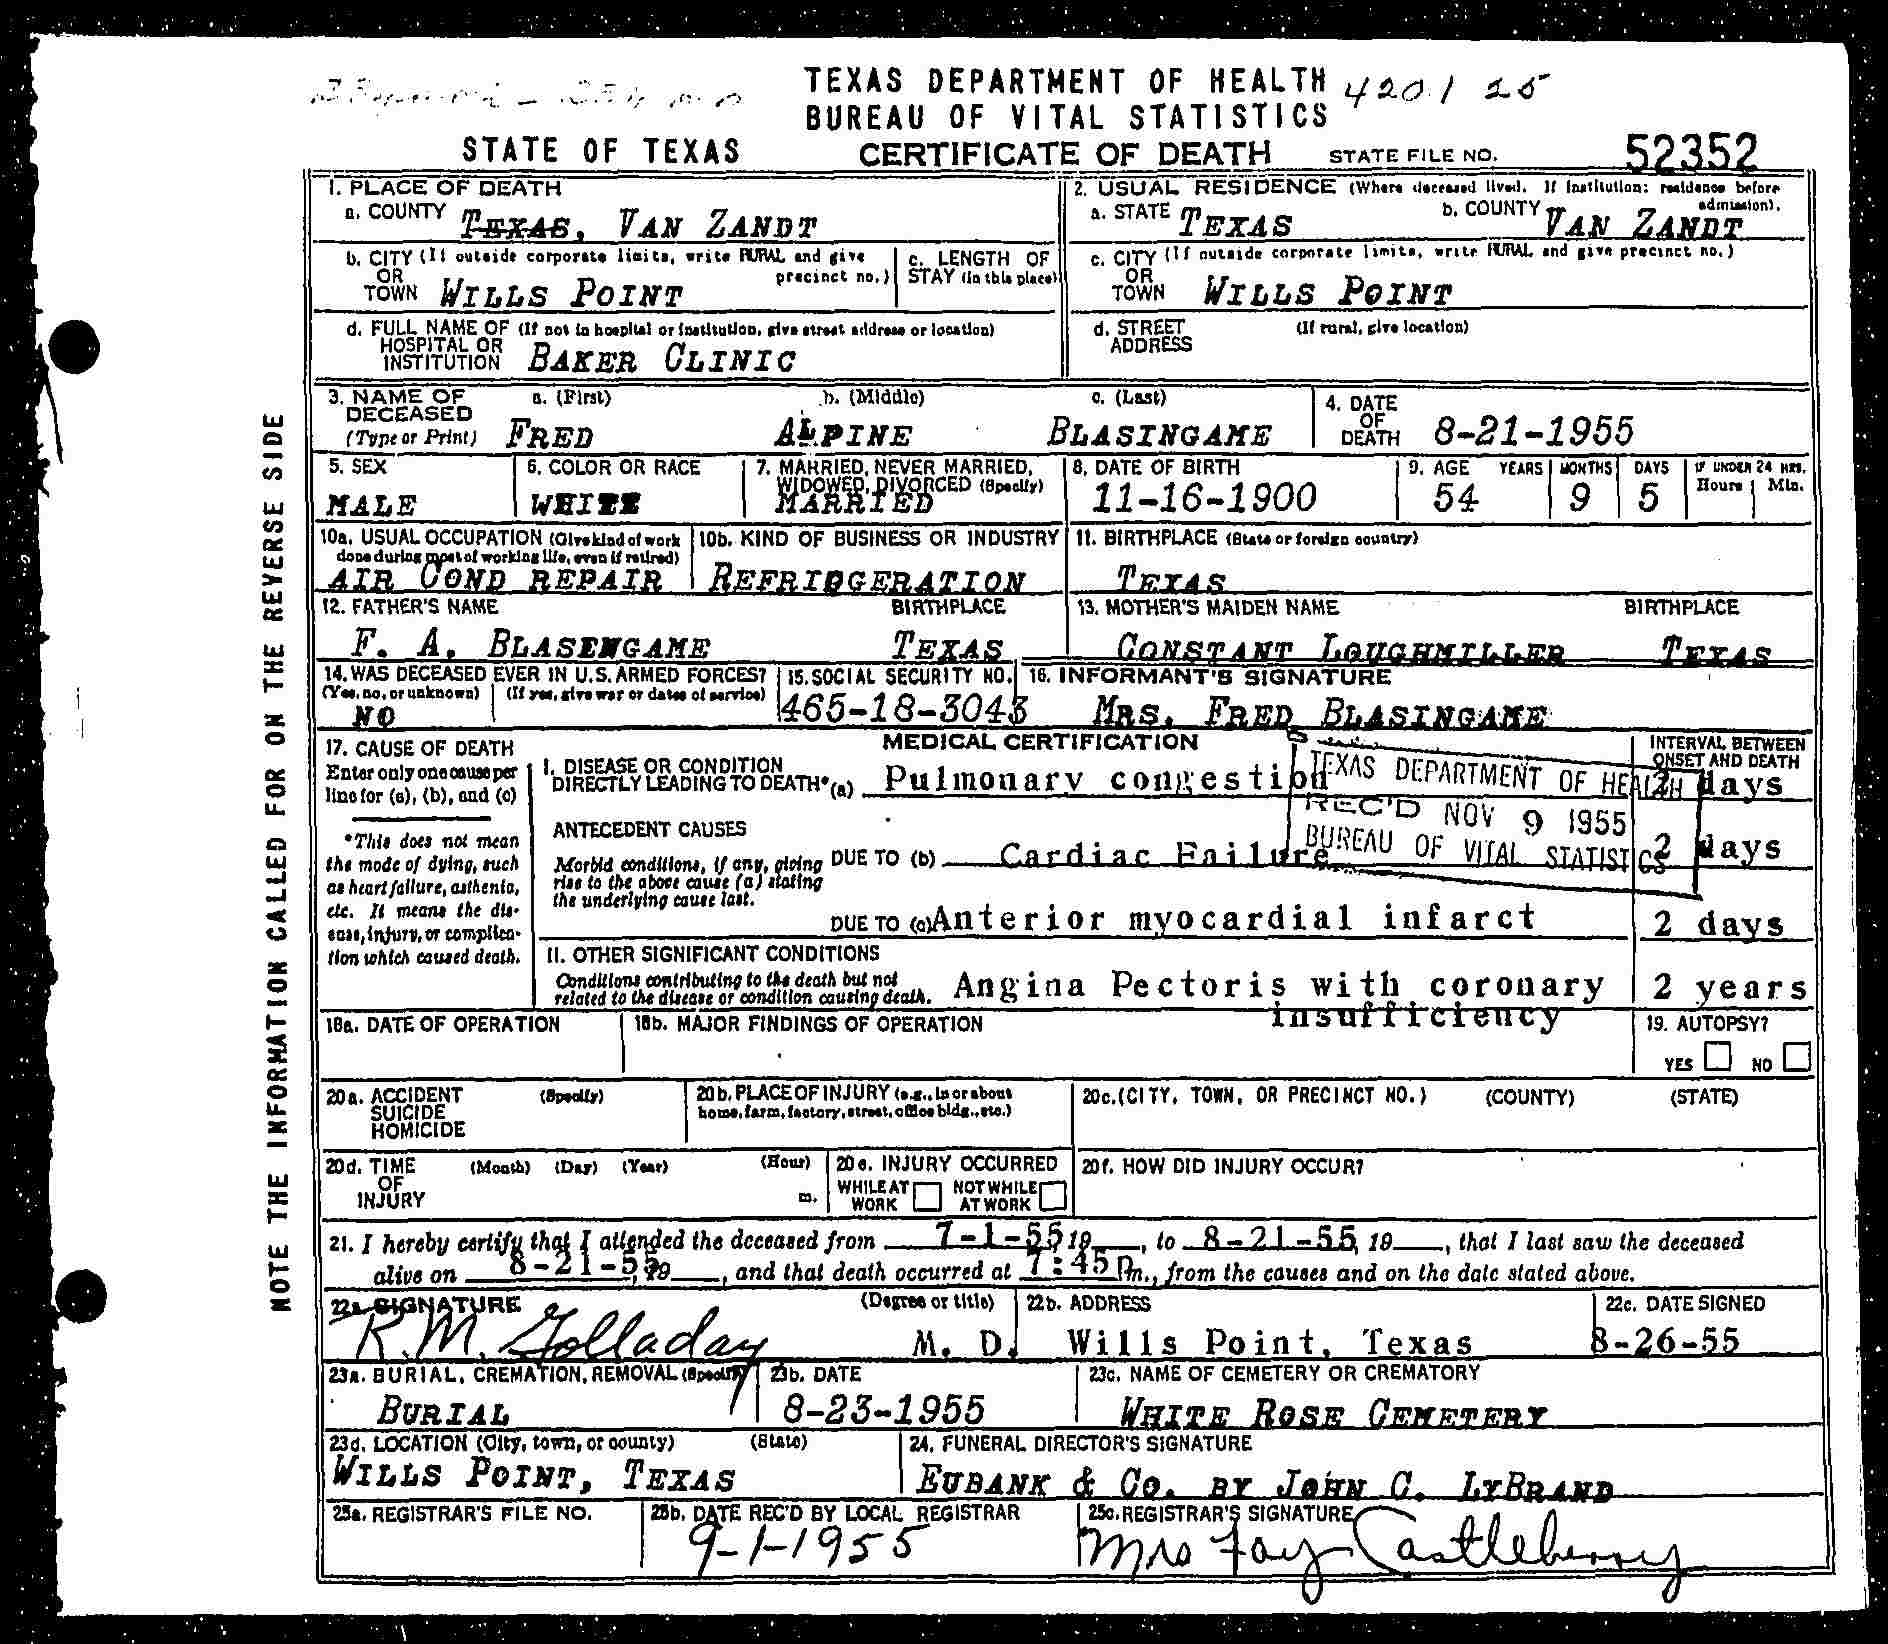 TEXAS DEPARTMENT OF HEALTH 4201 25
BUREAU OF VITAL STATISTICS
STATE OF TEXAS CERTIFICATE OF DEATH STATE FILE NO. 52352
NOTE THE INFORMATION CALLED FOR ON THE REVERSE SIDE
1. PLACE OF DEATH
a. COUNTY TEXAS, VAN ZANDT
2. USUAL RESIDENCE (Where deceased lived. If institution: residence before admission).
a. STATE TEXAS b. COUNTY VAN ZANDT
b. CITY (If outside corporate limits, write RURAL and give precinct no.)
OR
TOWN WILLS POINT
c. LENGTH OF
STAY (in this place)
c. CITY (If outside corporate limits, write RURAL and give precinct no.)
OR
TOWN WILLS POINT
d. FULL NAME OF (If not in hospital or institution, give street address or location)
HOSPITAL OR
INSTITUTION BAKER CLINIC
d. STREET (If rural, give location)
ADDRESS
3. NAME OF DECEASED (Type or Print)
a. (First) b. (Middle) c. (Last)
FRED ALPINE BLASINGAME
4. DATE OF DEATH 8-21-1955
5. SEX
MALE
6. COLOR OR RACE
WHITE
7. MARRIED, NEVER MARRIED,
WIDOWED, DIVORCED (Specify)
MARRIED
8. DATE OF BIRTH
11-16-1900
9. AGE YEARS MONTHS DAYS IF UNDER 24 HRS.
Hours Min.
54 9 5
10a. USUAL OCCUPATION (Give kind of work
done during most of working life, even if retired)
AIR COND REPAIR
10b. KIND OF BUSINESS OR INDUSTRY
REFRIGGERATION
11. BIRTHPLACE (State or foreign country)
TEXAS
12. FATHER'S NAME BIRTHPLACE
F. A. BLASENGAME TEXAS
13. MOTHER'S MAIDEN NAME BIRTHPLACE
CONSTANT LOUGHMILLER TEXAS
14. WAS DECEASED EVER IN U.S. ARMED FORCES?
(Yes, no, or unknown) (If yes, give war or dates of service)
NO
15. SOCIAL SECURITY NO.
465-18-3043
16. INFORMANT'S SIGNATURE
MRS. FRED BLASINGAME
17. CAUSE OF DEATH
Enter only one cause per
line for (a), (b), and (c)
*This does not mean
the mode of dying, such
as heart failure, asthenia,
etc. It means the dis-
ease, injury, or complica-
tion which caused death.
MEDICAL CERTIFICATION
INTERVAL BETWEEN
ONSET AND DEATH
I. DISEASE OR CONDITION
DIRECTLY LEADING TO DEATH* (a) Pulmonary congestion 2 days
TEXAS DEPARTMENT OF HEALTH
REC'D NOV 9 1955
BUREAU OF VITAL STATISTICS
ANTECEDENT CAUSES
Morbid conditions, if any, giving
rise to the above cause (a) stating
the underlying cause last.
DUE TO (b) Cardiac Failure 2 days
DUE TO (c) Anterior myocardial infarct 2 days
II. OTHER SIGNIFICANT CONDITIONS
Conditions contributing to the death but not
related to the disease or condition causing death.
Angina Pectoris with coronary 2 years
insufficiency
18a. DATE OF OPERATION
18b. MAJOR FINDINGS OF OPERATION
19. AUTOPSY?
YES NO
20a. ACCIDENT (Specify)
SUICIDE
HOMICIDE
20b. PLACE OF INJURY (e.g., in or about
home, farm, factory, street, office bldg., etc.)
20c. (CITY, TOWN, OR PRECINCT NO.) (COUNTY) (STATE)
20d. TIME (Month) (Day) (Year) (Hour)
OF
INJURY m.
20e. INJURY OCCURRED
WHILE AT WORK NOT WHILE AT WORK
20f. HOW DID INJURY OCCUR?
21. I hereby certify that I attended the deceased from 7-1-55 19, to 8-21-55, 19, that I last saw the deceased
alive on 8-21-55, 19, and that death occurred at 7:45 P m., from the causes and on the date stated above.
22a. SIGNATURE (Degree or title)
R.M. Golladay M. D.
22b. ADDRESS
Wills Point, Texas
22c. DATE SIGNED
8-26-55
23a. BURIAL, CREMATION, REMOVAL (Specify)
BURIAL
23b. DATE
8-23-1955
23c. NAME OF CEMETERY OR CREMATORY
WHITE ROSE CEMETERY
23d. LOCATION (City, town, or county) (State)
WILLS POINT, TEXAS
24. FUNERAL DIRECTOR'S SIGNATURE
EUBANK & CO. BY JOHN C. LYBRAND
25a. REGISTRAR'S FILE NO.
25b. DATE REC'D BY LOCAL REGISTRAR
9-1-1955
25c. REGISTRAR'S SIGNATURE
Mrs Fay Castleberry